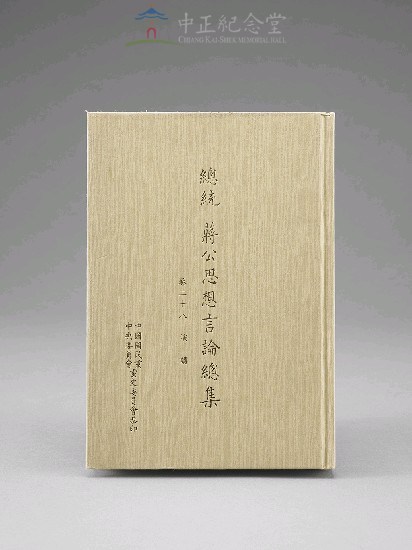 中正紀念堂
CHIANG KAI-SHEK MEMORIAL HALL
總統 蔣公思想言論總集
卷二十八 演講
中國國民黨
中央委員會
黨史委員會恭印